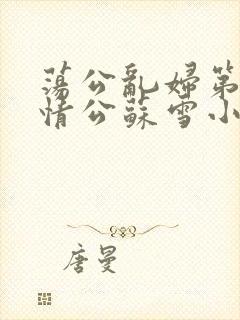 蕩公亂婦第
情公蘇雪小
唐曼